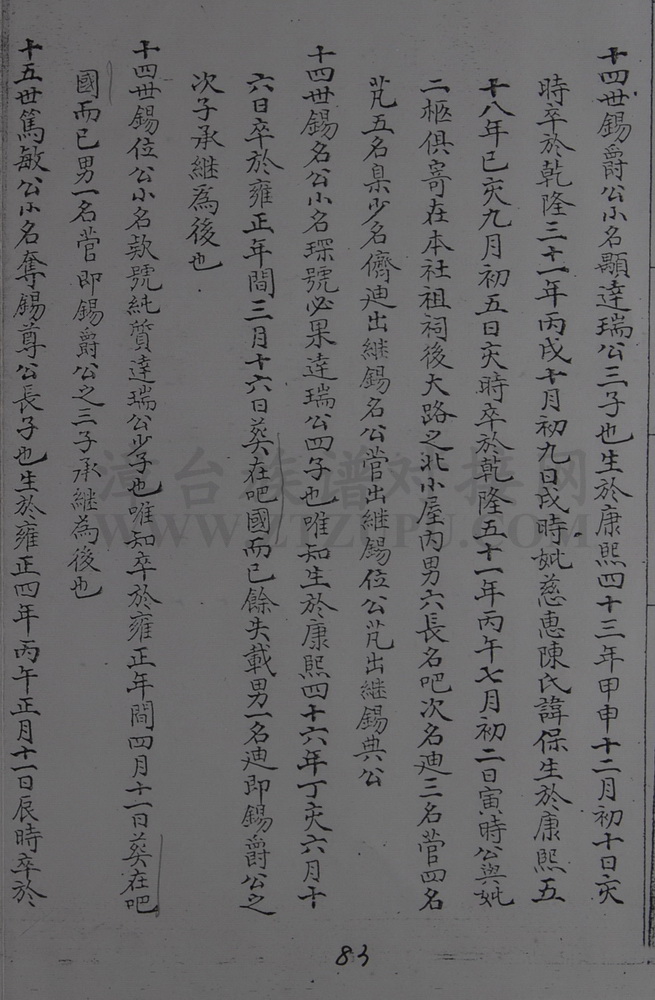 十四世錫爵公小名顯達瑞公三子也生於康熙四十三年甲申十二月初十日亥
時卒於乾隆三十一年丙戌十月初九日戌時妣慈惠陳氏諱保生於康熙五
十八年己亥九月初五日亥時卒於乾隆五十一年丙午七月初二日寅時公與妣
二柩俱寄在本社祖祠後大路之北小屋內男六長名吧次名迪三名菅四名
芃五名臬少名儕迪出継錫名公菅出継錫位公芃出継錫典公
十四世錫名公小名琛號必果達瑞公四子也唯知生於康熙四十六年丁亥六月十
六日卒於雍正年間三月十六日葬在吧國而已餘失載男一名迪即錫爵公之
次子承継為後也
十四世錫位公小名款號純質達瑞公少子也唯知卒於雍正年間四月十一日葬在吧
國而已男一名菅即錫爵公之三子承継為後也
十五世篤敏公小名奪錫尊公長子也生於雍正四年丙午正月十一日辰時卒於
漳台族谱对接网
WWW.ZTZUPU.COM
83